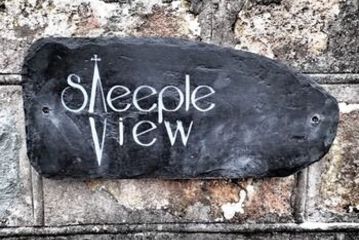 Steeple
View